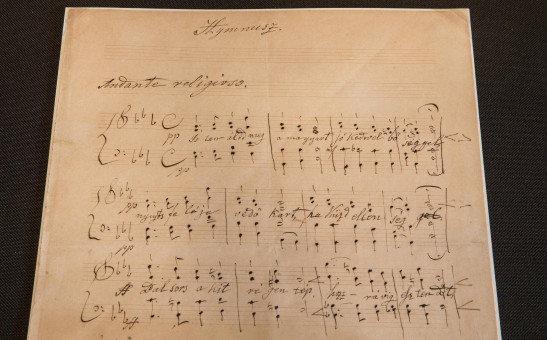 Hymnusz.
Andante religioso.
pp
Is ten áldd meg a magyart jó kedvvel bő séggel
pp
pp
nyújts fe léje védő kart, ha küzd ellen ség gel
pp
Bal sors a kit ré gen tép, hoz - rá víg
ff